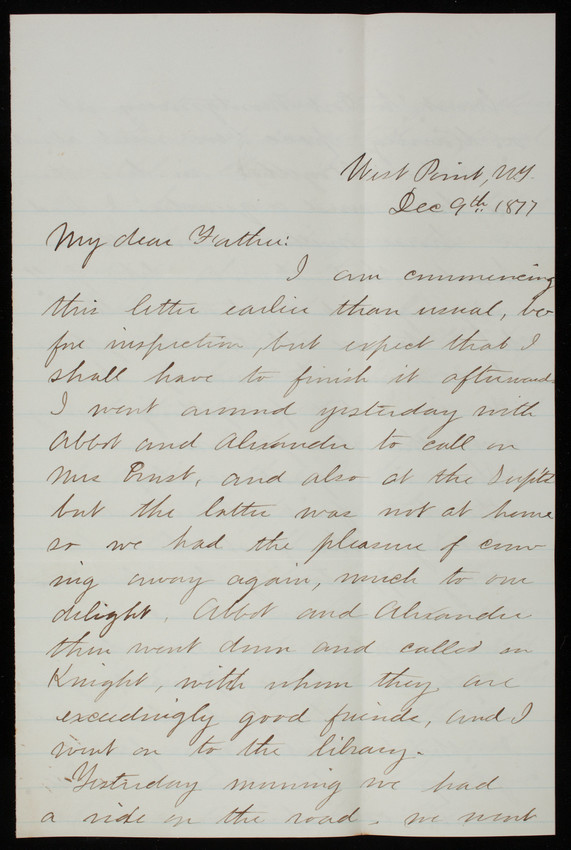 West Point, N.Y.
Dec 9th 1877
My dear Father:
I am commencing
this letter earlier than usual, be-
fore inspection, but expect that I
shall have to finish it afterwards
I went around yesterday with
Abbot and Alexander to call on
Mrs Ernst, and also at the Supt's
but the latter was not at home
so we had the pleasure of com-
ing away again, much to our
delight. Abbot and Alexander
then went down and called on
Knight, with whom they are
exceedingly good friends, and I
went on to the library.
Yesterday morning we had
a ride on the road - we went